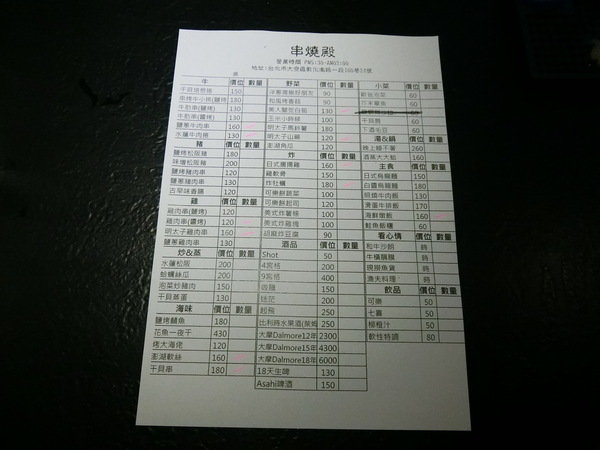 串燒殿
營業時間 PM5:30-AM03:00
牛 價位 數量
干貝培根捲 150
串烤牛小排(鹽烤) 180
牛肋串(鹽烤) 130
牛肋串(醬烤) 130
鹽蔥牛肉串 160
水蓮牛肉捲 160
豬 價位 數量
鹽烤松阪豬 180
味噌松阪豬 200
鹽烤豬肉串 120
鹽蔥豬肉串 130
古早味香腸 120
雞 價位 數量
雞肉串(鹽烤) 120
雞肉串(醬烤) 120
明太子雞肉串 160
鹽蔥雞肉串 130
炒&蒸 價位 數量
水蓮松阪 200
蛤蠣絲瓜 200
泡菜炒豬肉 150
干貝蒸蛋 130
海味 價位 數量
鹽烤鯖魚 180
花魚一夜干 430
烤大海佬 120
澎湖軟絲 160
干貝串 180
野菜 價位 數量
洋蔥青椒好朋友 90
和風烤香菇 90
美人腿從白筍 130
玉米小時候 100
明太子馬鈴薯 180
明太子山藥 120
澎湖角瓜 120
炸 價位 數量
日式唐揚雞 160
雞軟骨 150
炸牡蠣 180
可樂餅蔬菜 100
可樂餅起司 120
美式炸薯條 100
美式炸雞塊 100
胡麻炸豆腐 90
酒品 價位 數量
Shot 50
4宮格 200
9宮格 400
吸瓶 150
迷茫 200
起飛 250
大摩Dalmore12年 2300
大摩Dalmore15年 4300
大摩Dalmore18年 6000
18天生啤 130
Asahi啤酒 150
小菜 價位 數量
60
芥末章魚 60
60
60
下酒毛豆 60
湯&鍋 價位 數量
晚上睡不著 260
酒蒸大大蛤 160
主食 價位 數量
日式烏龍麵 150
白醬烏龍麵 180
照燒牛肉飯 130
滑蛋牛排飯 130
海鮮燉飯 160
鮭魚飯糰 60
看心情 價位 數量
和牛沙朗 時
牛橫膈膜 時
現撈魚貨 時
漁夫料理 時
飲品 價位 數量
可樂 50
七喜 50
柳橙汁 50
軟性特調 80